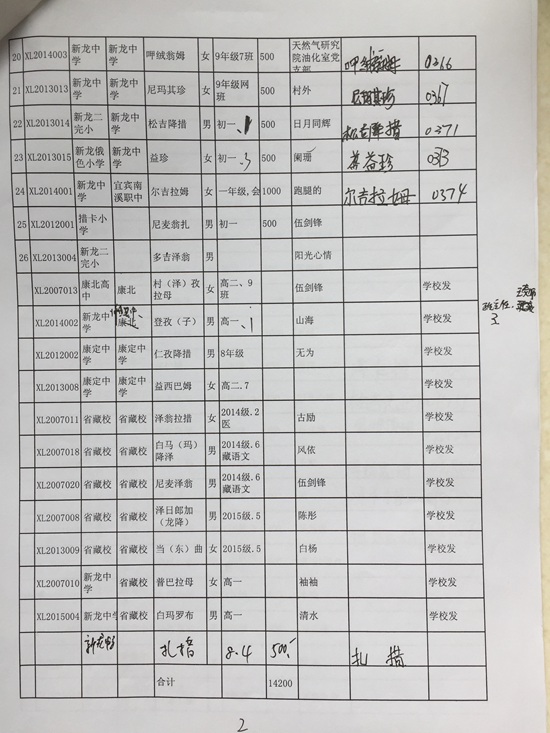 20 XL2014003 新龙中学 新龙中学 呷绒翁姆 女 9年级7班 500 天然气研究院油化室党支部 呷绒翁姆 0366
21 XL2013013 新龙中学 新龙中学 尼玛其珍 女 9年级网班 500 村外 尼玛其珍 0367
22 XL2013014 新龙二完小 新龙中学 松吉降措 男 初一、1 500 日月同辉 松吉降措 0371
23 XL2013015 新龙俄色小学 新龙中学 益珍 女 初一、3 500 阑珊 益珍
24 XL2014001 新龙中学 宜宾南溪职中 尔吉拉姆 女 一年级,会 1000 跑腿的 尔吉拉姆 0374
25 XL2012001 措卡小学 尼麦翁扎 男 初一 500 伍剑锋
26 XL2013004 新龙二完小 多吉泽翁 男 阳光心情
XL2007013 康北高中 康北 村（泽）孜拉母 女 高二、9班 伍剑锋 学校发
XL2014002 新龙中学 康北 登孜（子） 男 高一、1 山海 学校发 班主任:
XL2012002 康定中学 康定中学 仁孜降措 男 8年级 无为 学校发
XL2013008 康定中学 康定中学 益西巴姆 女 高二.7 学校发
XL2007011 省藏校 省藏校 泽翁拉措 女 2014级.2医 古励 学校发
XL2007018 省藏校 省藏校 白马（玛）降泽 男 2014级.6藏语文 风依 学校发
XL2007020 省藏校 省藏校 尼麦泽翁 男 2014级.6藏语文 伍剑锋 学校发
XL2007008 省藏校 省藏校 泽日郎加（龙降） 男 2015级.5 陈彤 学校发
XL2013009 省藏校 省藏校 当（东）曲 女 2015级.5 白杨 学校发
XL2007010 新龙中学 省藏校 普巴拉母 女 高一 袖袖 学校发
XL2015004 新龙中学 省藏校 白玛罗布 男 高一 清水 学校发
新龙中学 扎措 8.4 500. 扎措
合计 14200
2